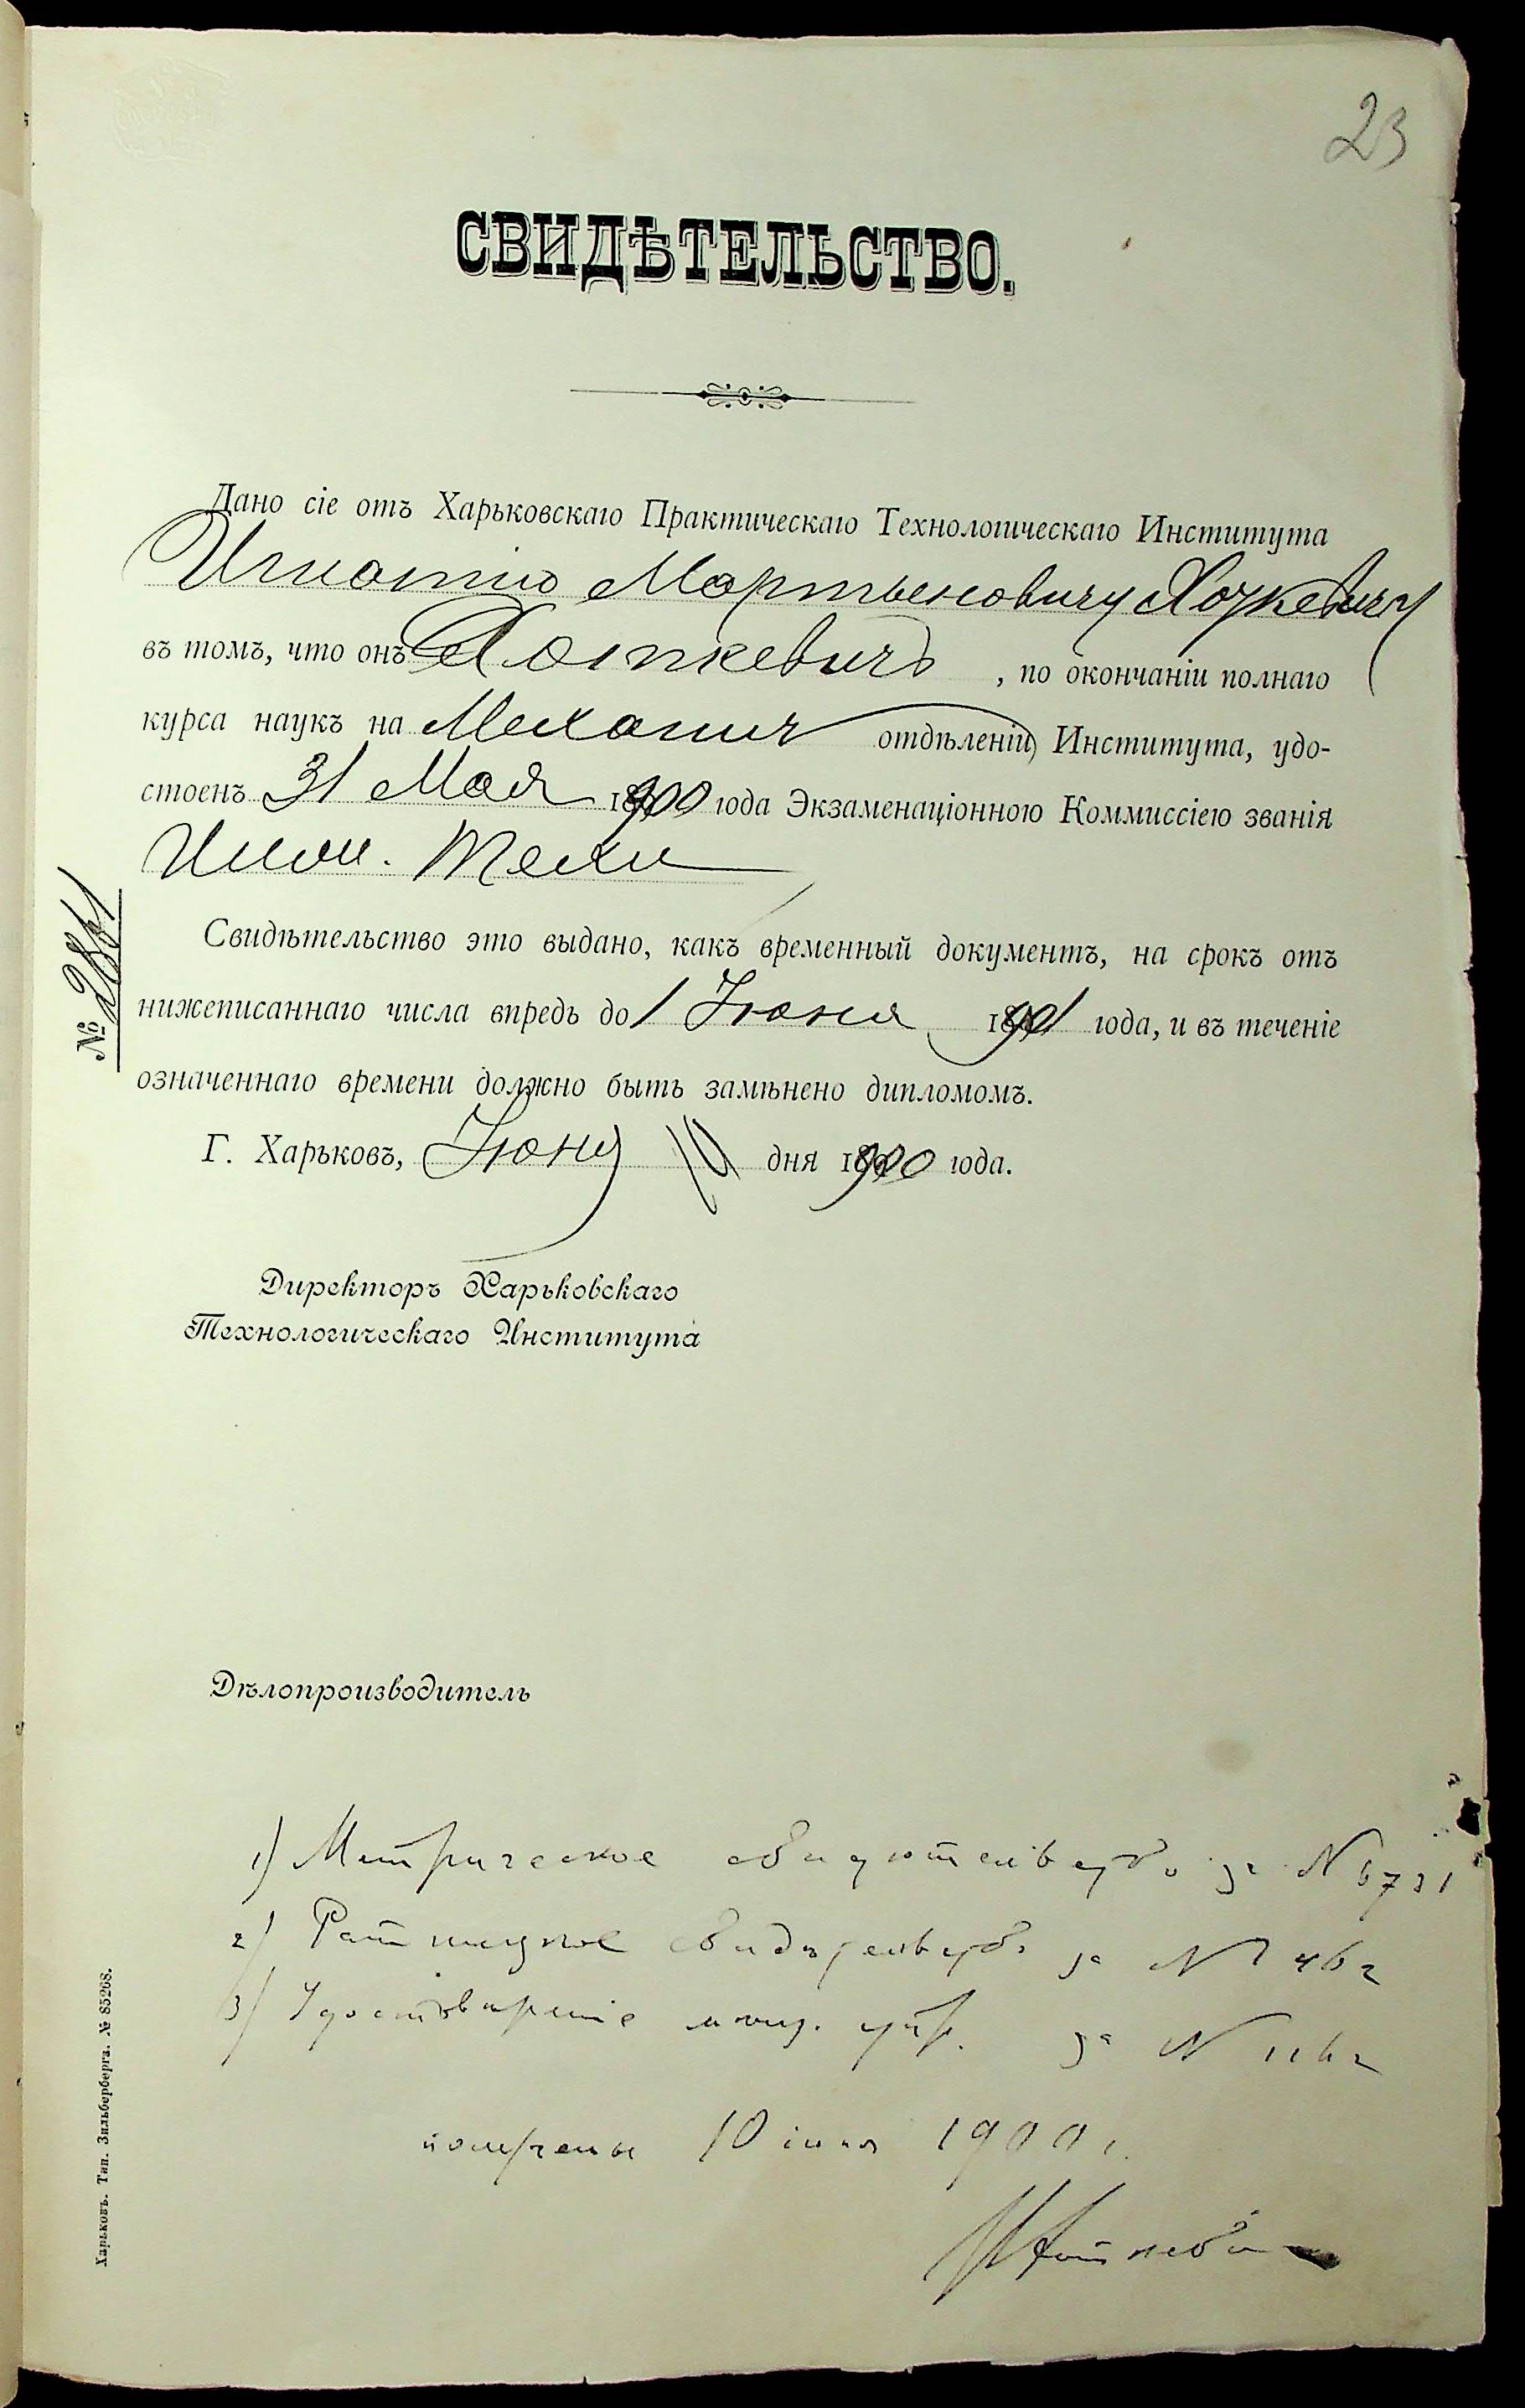 23
СВИДѢТЕЛЬСТВО.
Дано сіе отъ Харьковскаго Практическаго Технологическаго Института
Игнатію Мартыновичу Хоткевичу
въ томъ, что онъ Хоткевичъ, по окончаніи полнаго
курса наукъ на Механич отдѣленіи Института, удо-
стоенъ 31 Мая 1900 года Экзаменаціонною Коммиссіею званія
Инж. Техн
Свидѣтельство это выдано, какъ временный документъ, на срокъ отъ
нижеписаннаго числа впредь до 1 Іюня 1901 года, и въ теченіе
означеннаго времени должно быть замѣнено дипломомъ.
Г. Харьковъ, Іюня 10 дня 1900 года.
№
Директоръ Харьковскаго
Технологическаго Института
Дѣлопроизводитель
1) Метрическое свидѣтельство за N 6731
2) свидѣтельство за N 462
3) Удостовѣреніе за N
получены 10 іюня 1900 г.
Хоткевич
Харьковъ. Тип. Зильберберга. № 85268.